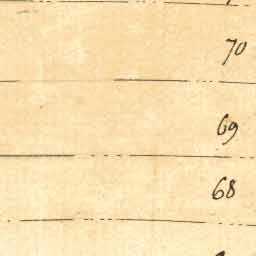 70
69
68